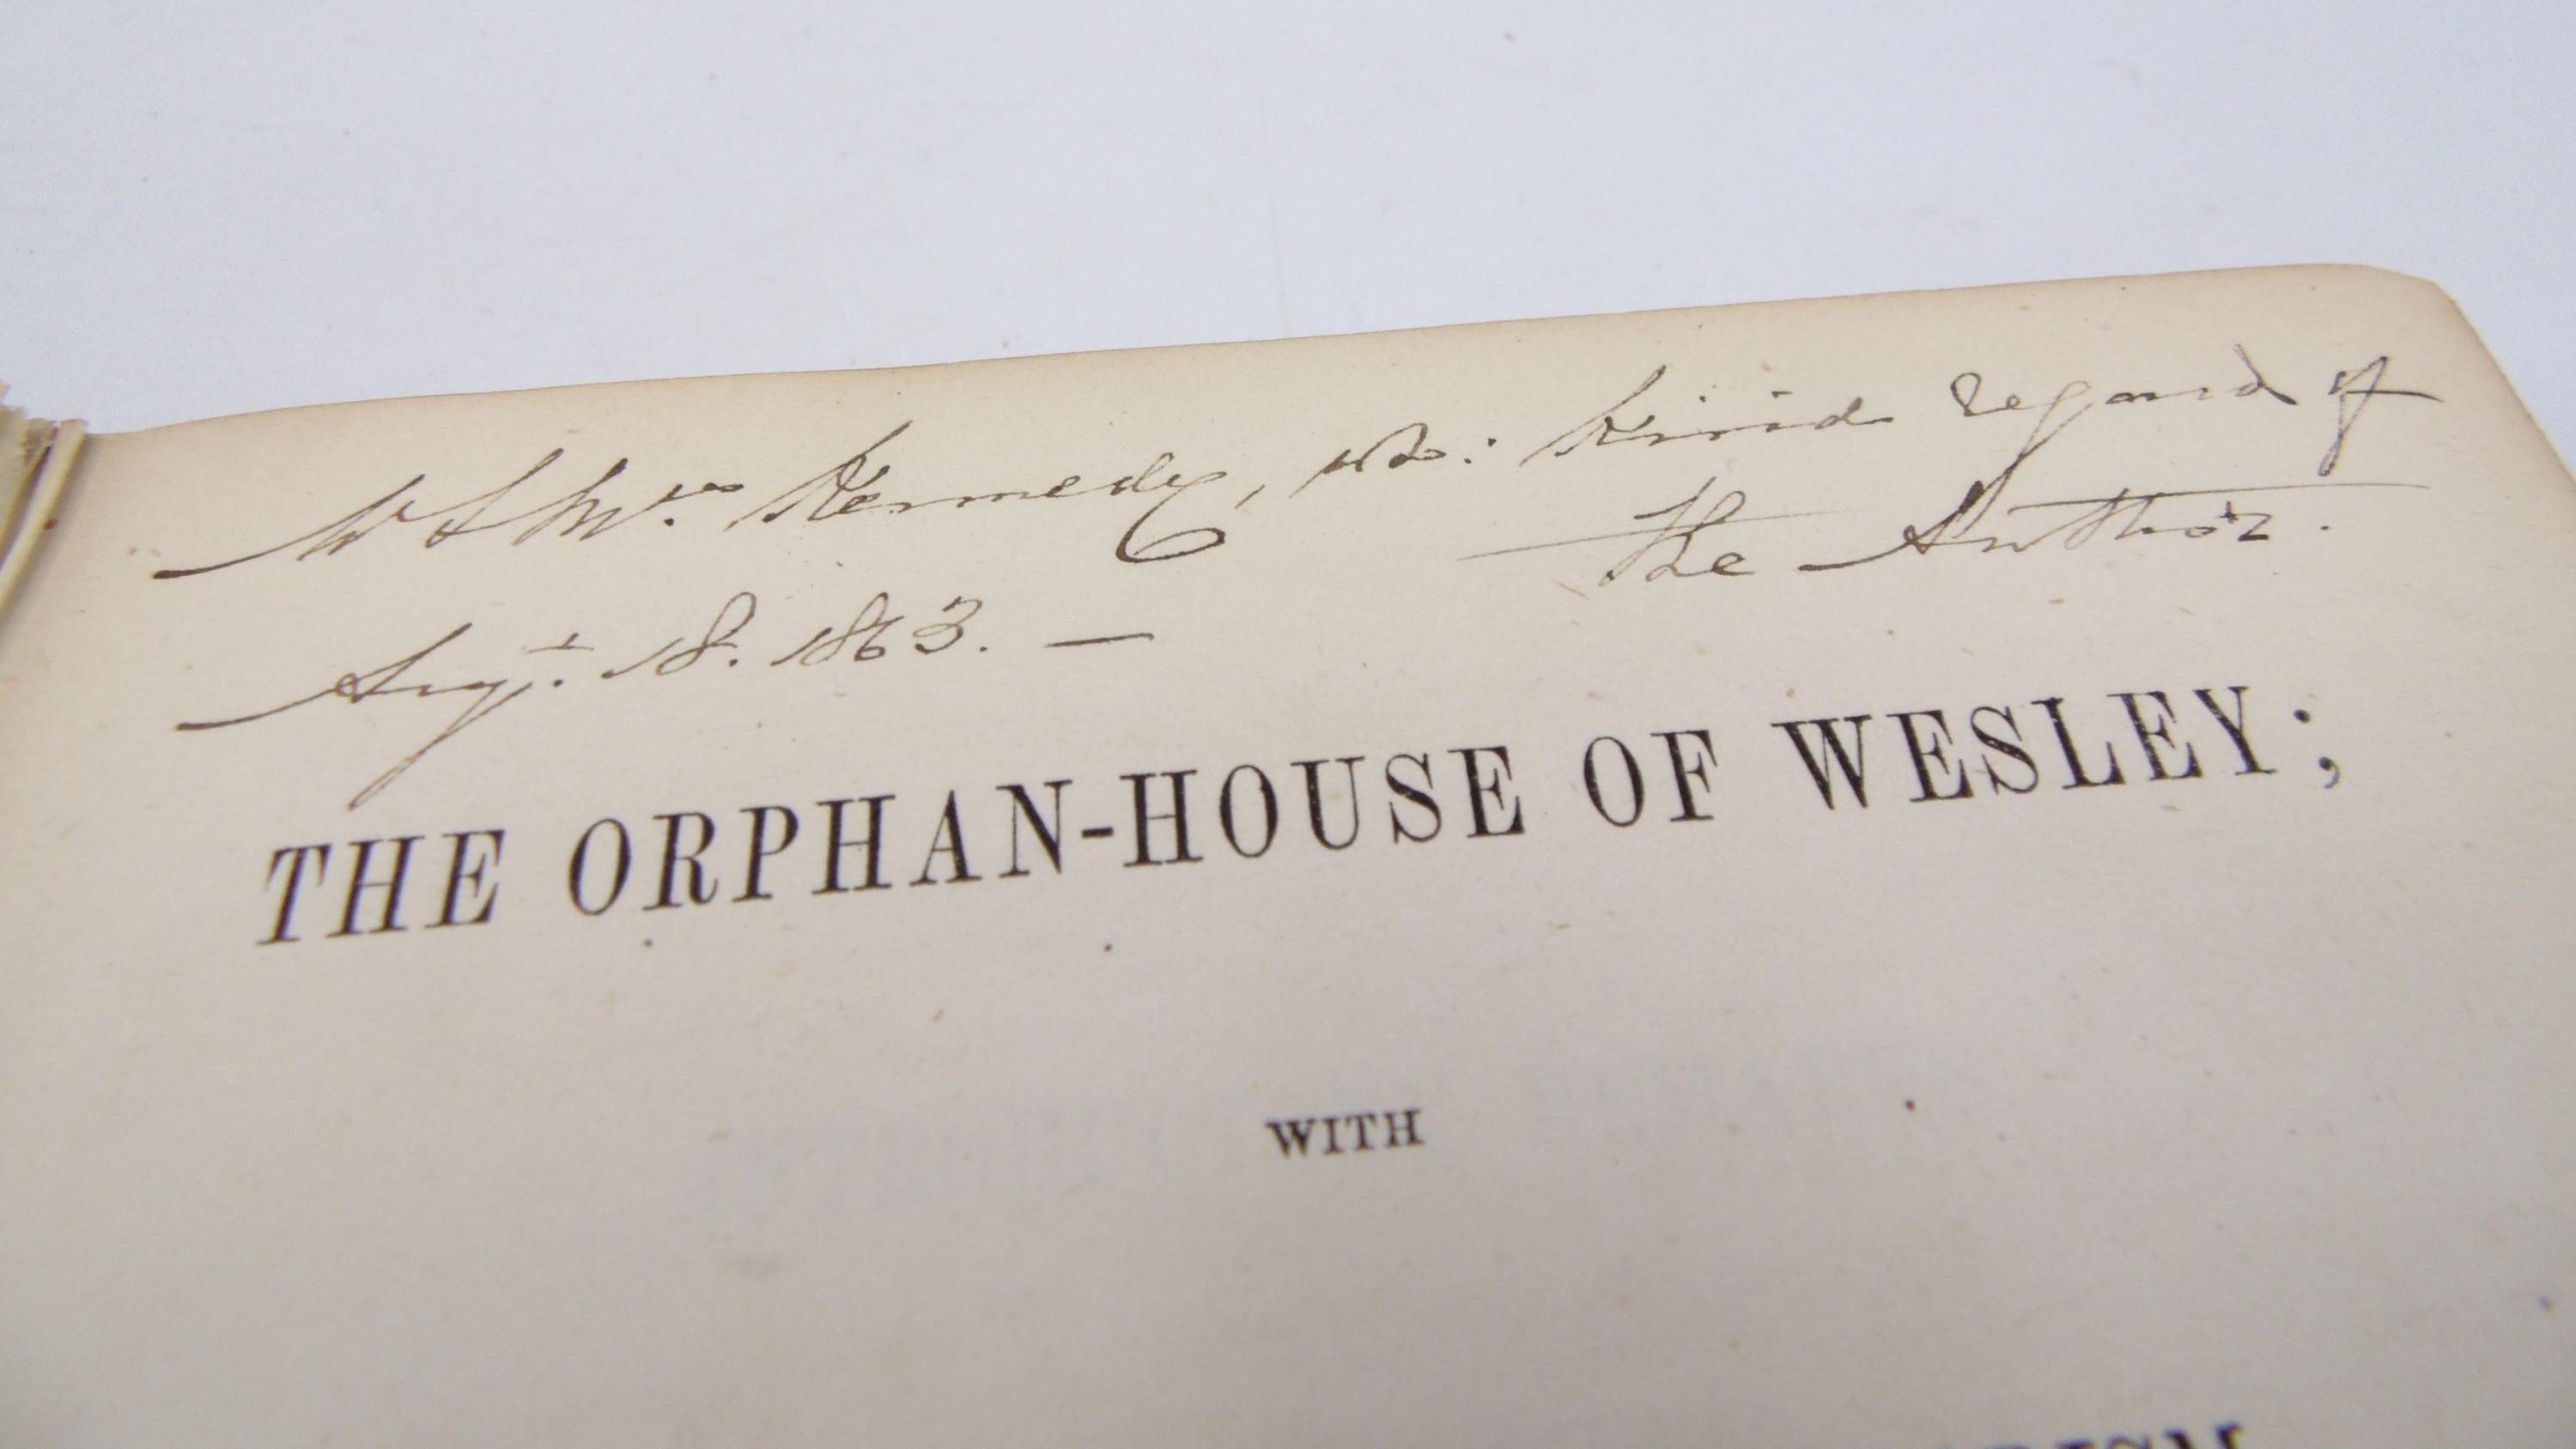 Mr & Mrs. Kennedy, wh: Kind regard of
The Author.
Augt. 18. 1863. —
THE ORPHAN-HOUSE OF WESLEY;
WITH